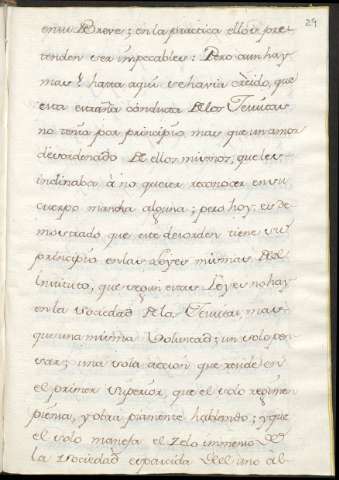 29
en su Breve; en la practica ellos pre-
tenden ser impecables: Pero aun hay
mas: hasta aqui se havia creido, que
esta estraña conducta de los Jesuitas
no tenia por principio, mas que un amor
desordenado de ellos mismos, que les
inclinaba á no querer reconocer en su
cuerpo mancha alguna; pero hoy es de-
mostrado, que este desorden tiene su
principio en las Leyes mismas del
instituto, que segun estas Leyes no hay
en la Sociedad de los Jesuitas, mas
que una misma Voluntad; un solo pen-
sar; una sola accion que reside en
el primer Superior, que el solo
piensa, y obra piamente hablando; y que
el solo maneja el Zelo immenso de
la Sociedad esparcida del uno al